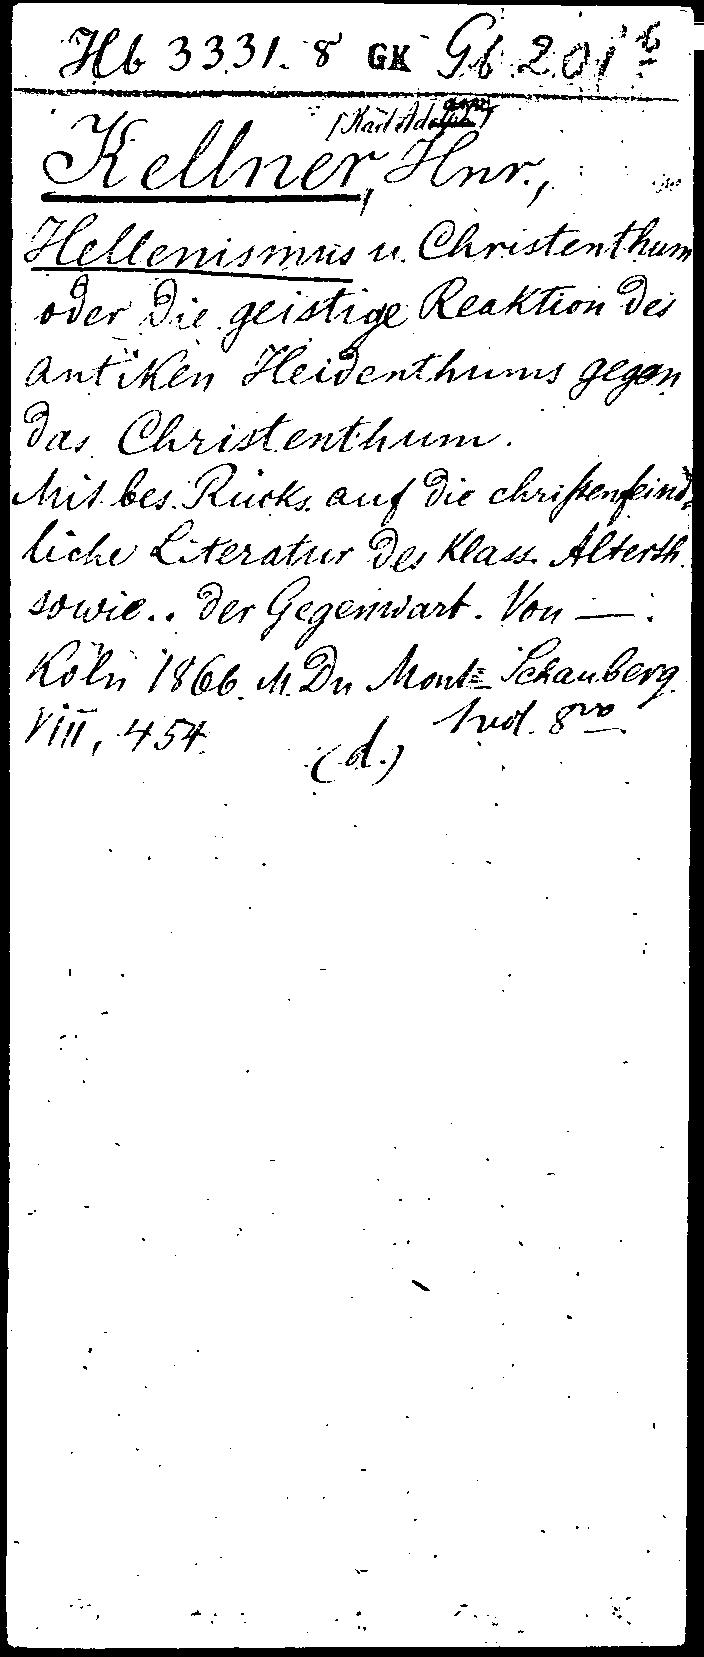 Hb 3331. 8 GK Gb 201 b
/Karl Adam/
Kellner, Hnr.,
Hellenismus u. Christenthum
oder Die geistige Reaktion des
antiken Heidenthums gegen
das Christenthum.
Mit bes. Rücks. auf die christenfeind-
liche Literatur des klass. Alterth.
sowie.. der Gegenwart. Von —.
Köln 1866. M. Du Mont-Schauberg.
VIII, 454. 1 vol. 8vo
(d.)